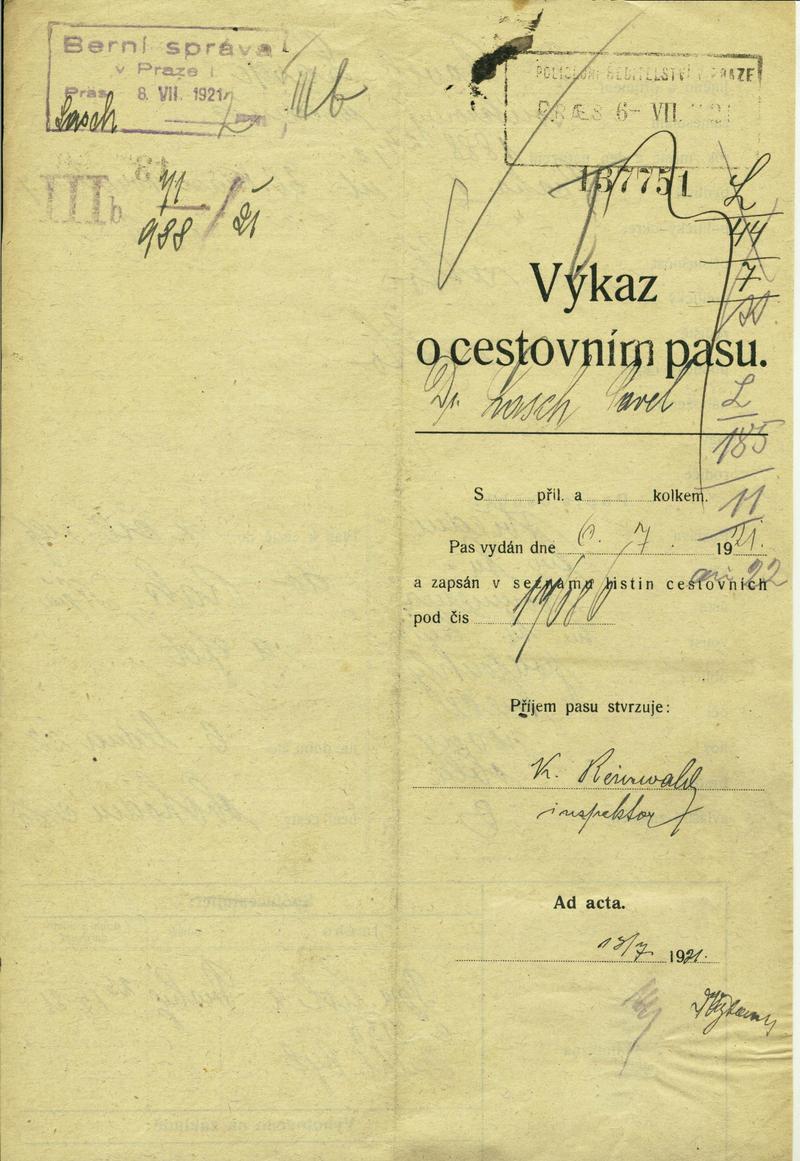 Berní správa
v Praze I
Præs. 8. VII. 1921
Lasch
IIIb
POLICEJNÍ ŘEDITELSTVÍ V PRAZE
PRÆS 6- VII. 1921
137751
IIIb
71
988 / 21
L
44
7
Výkaz
o cestovním pasu.
Dr. Lasch Pavel
L
185
11
S příl. a kolkem.
Pas vydán dne 6. 7. 1921.
a zapsán v seznamu listin cestovních
pod čís
Příjem pasu stvrzuje:
K. Reinwald
inspektor
Ad acta.
13/7 1921.